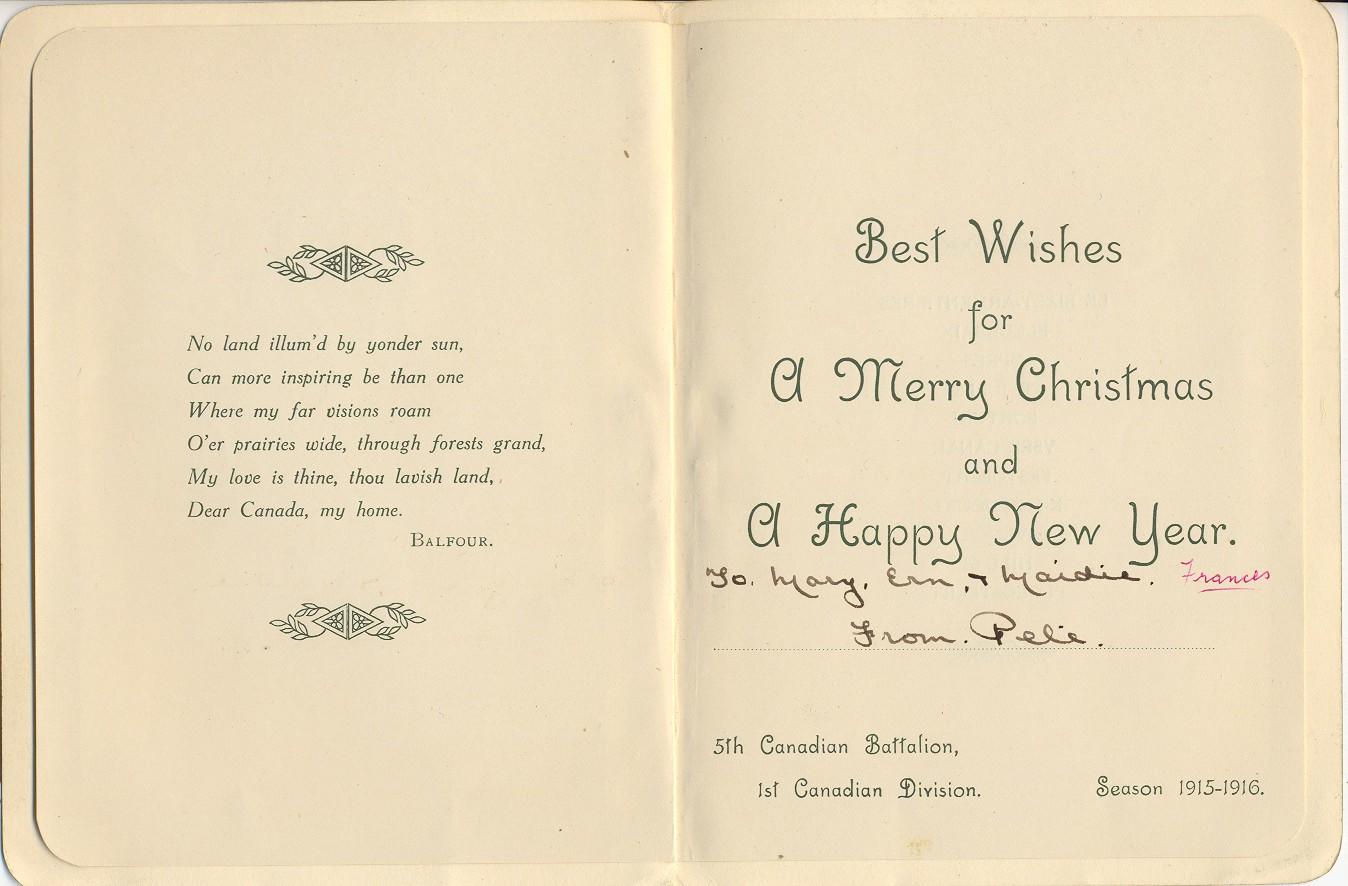 No land illum'd by yonder sun,
Can more inspiring be than one
Where my far visions roam
O'er prairies wide, through forests grand,
My love is thine, thou lavish land,
Dear Canada, my home.
BALFOUR.
Best Wishes
for
A Merry Christmas
and
A Happy New Year.
To. Mary, Ern, + Maidie. Frances
From. Pele.
5th Canadian Battalion,
1st Canadian Division. Season 1915-1916.